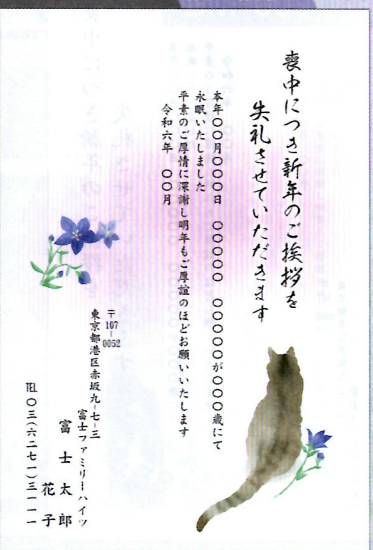 喪中につき新年のご挨拶を
失礼させていただきます
本年〇〇月〇〇〇日　〇〇〇〇〇　〇〇〇〇〇が〇〇〇歳にて
永眠いたしました
平素のご厚情に深謝し明年もご厚誼のほどお願いいたします
令和六年　〇〇月
〒107-0052
東京都港区赤坂九-七-三
富士ファミリーハイツ
富士太郎
花子
TEL〇三(六二七一)三一一一